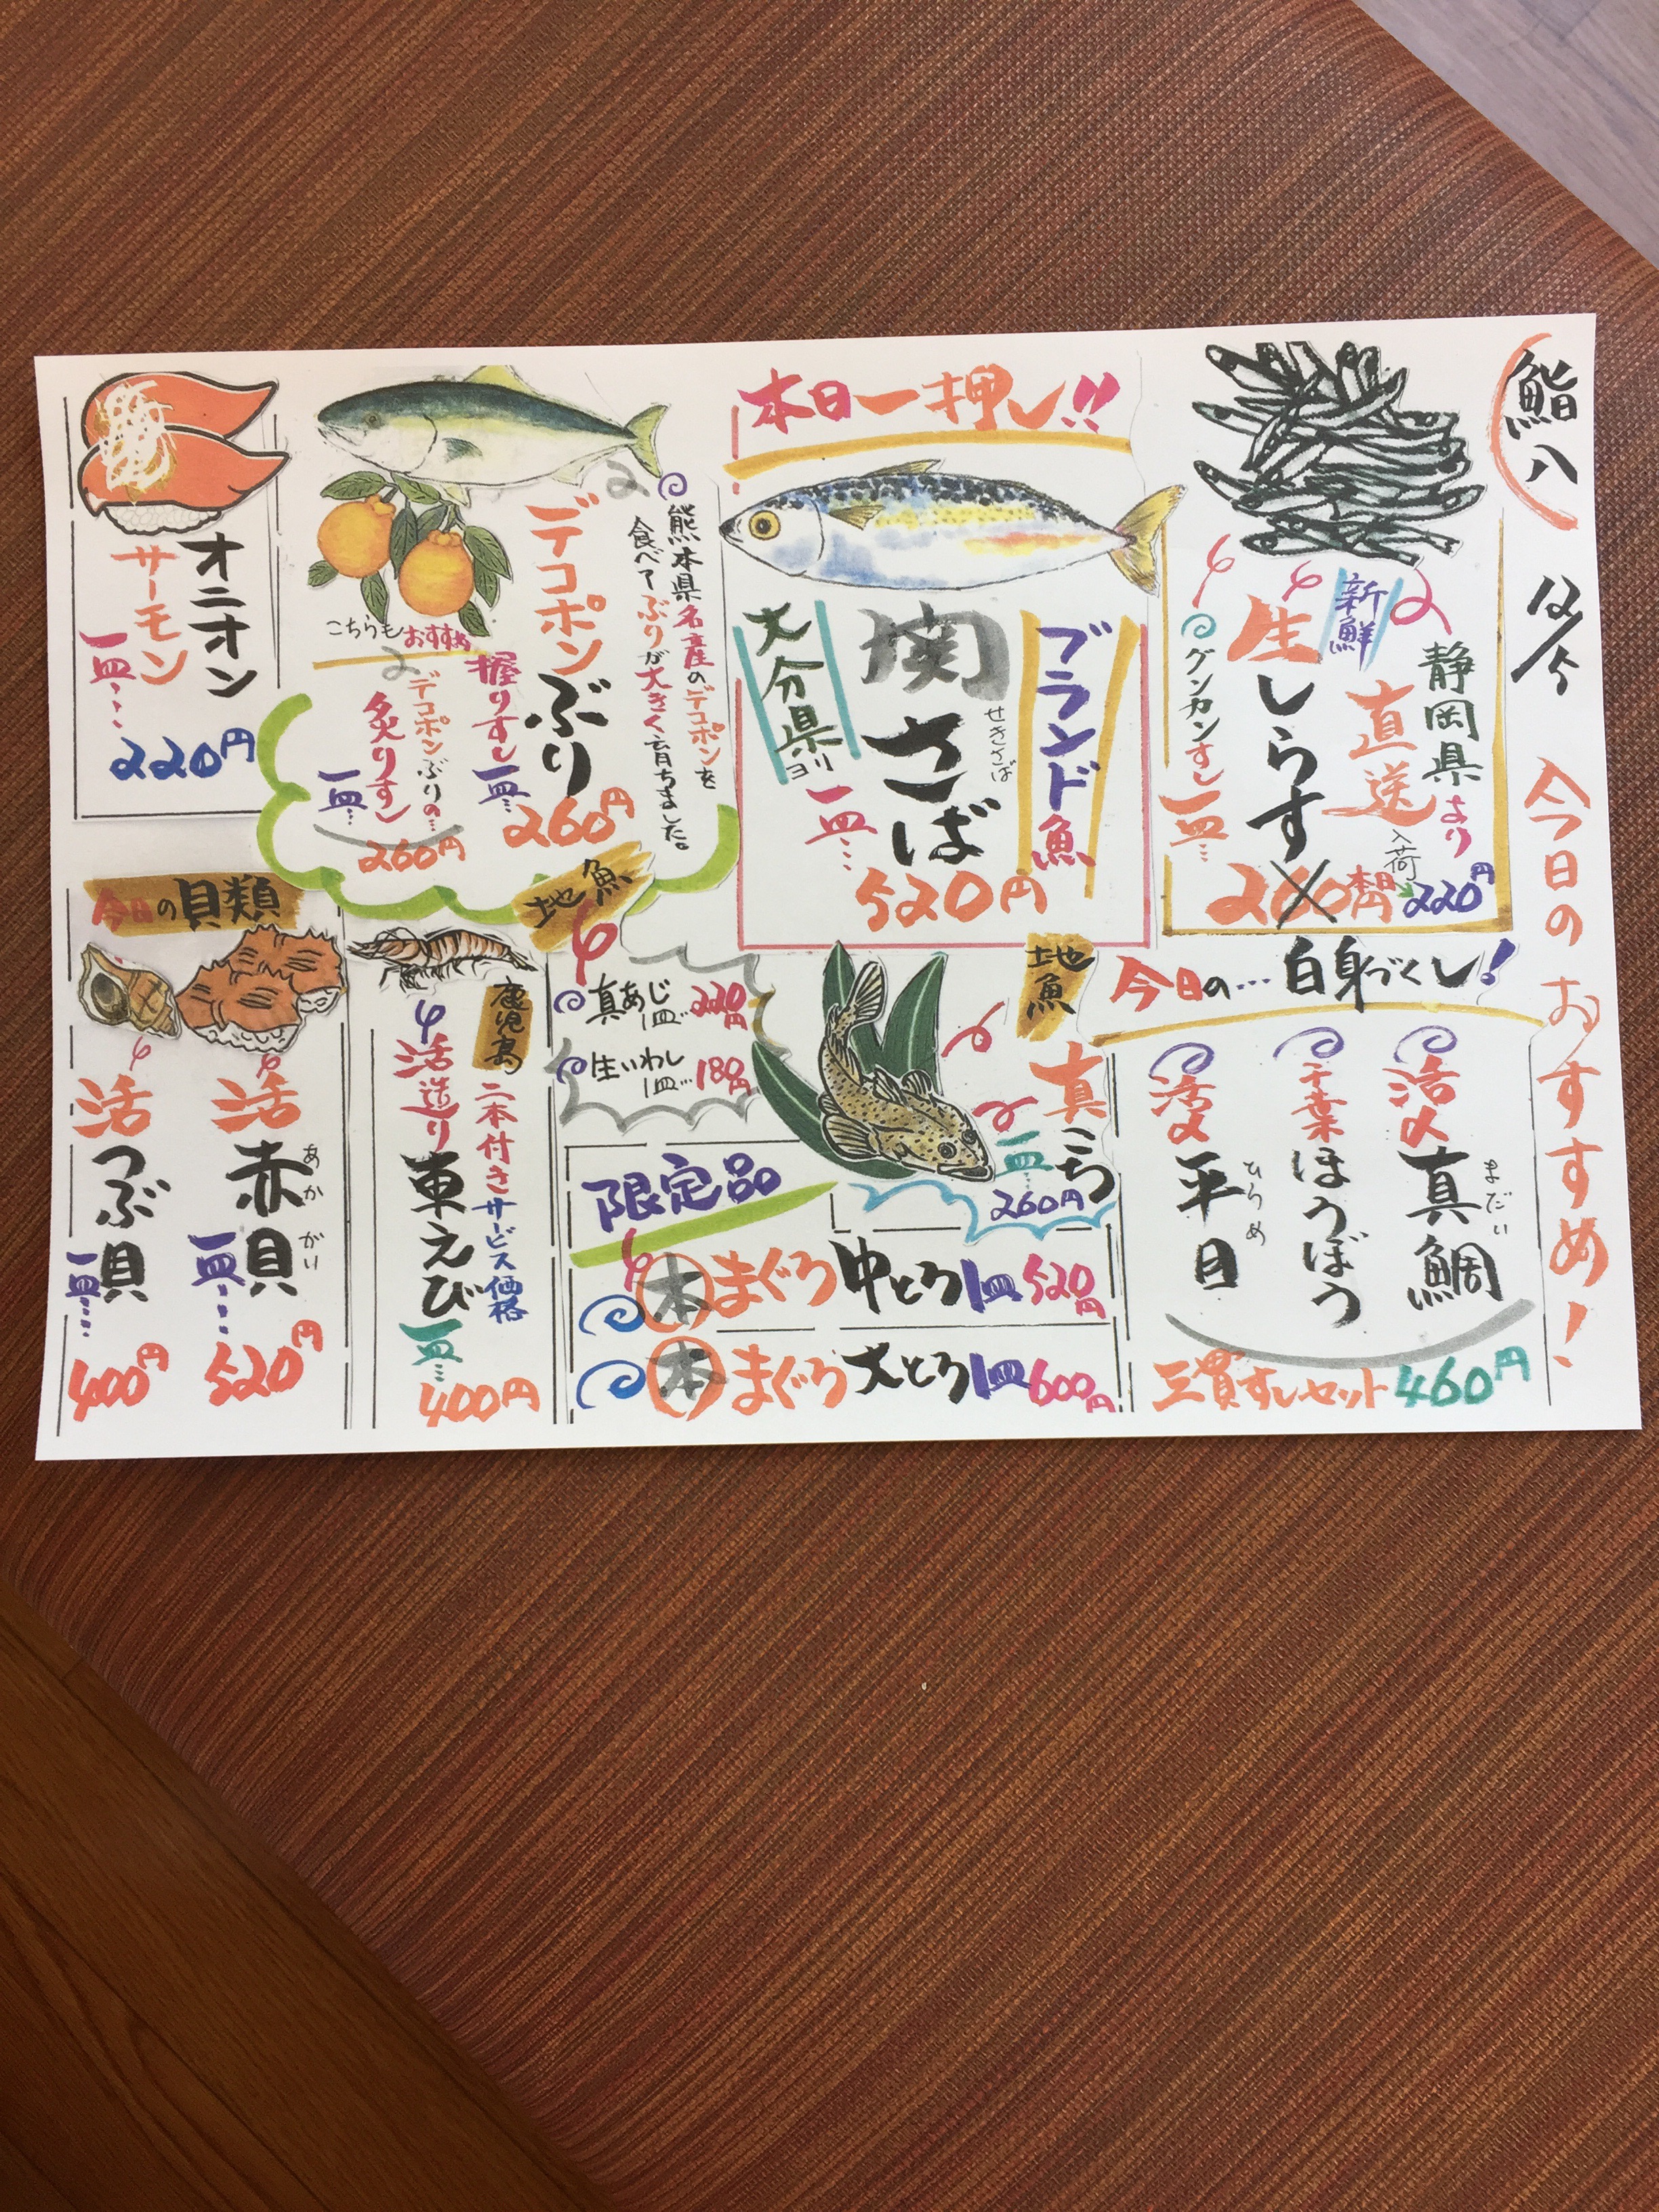 鮨八
12/5
今日のおすすめ!
新鮮
静岡県より
直送
入荷
生しらす
グンカンすし
一皿…
260円
本日
220円
本日一押し!!
ブランド魚
関さば
せきさば
大分県ヨリ
一皿…
520円
熊本県名産のデコポンを
食べてぶりが大きく育ちました。
デコポンぶり
握りすし一皿…
260円
こちらもおすすめ
デコポンぶりの…
炙りすし
一皿…
260円
オニオン
サーモン
一皿…
220円
今日の…白身づくし!
活〆真鯛
まだい
千葉ほうぼう
活〆平目
ひらめ
三貫すしセット460円
地魚
真こち
一皿…
260円
地魚
真あじ
一皿…220円
生いわし
一皿…180円
限定品
本まぐろ中とろ一皿520円
本まぐろ大とろ一皿600円
鹿児島
二本付きサービス価格
活造り車えび
一皿…
400円
今日の貝類
活赤貝
あかがい
一皿…
520円
活つぶ貝
一皿…
400円